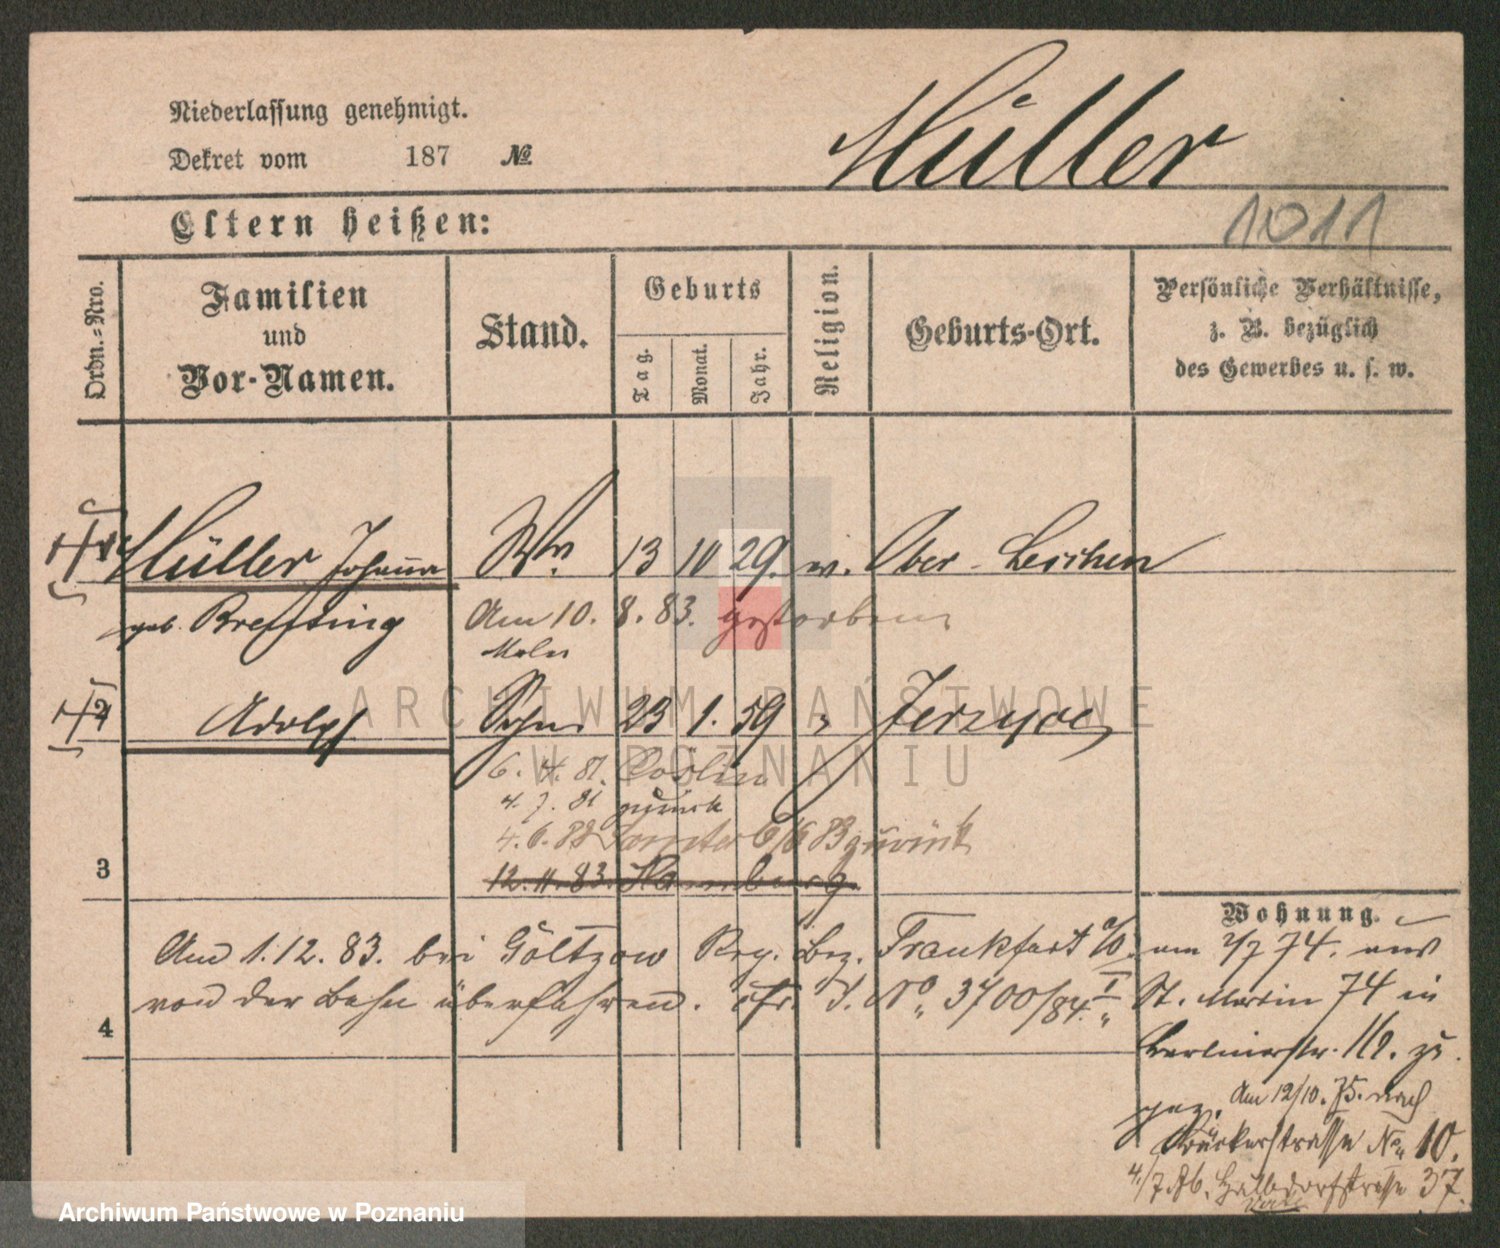 Müller
Niederlassung genehmigt.
Dekret vom 187 №
1011
Eltern heißen:
Ordn.=Nro.
Familien
und
Vor-Namen.
Stand.
Geburts
Tag.
Monat.
Jahr.
Religion.
Geburts-Ort.
Persönliche Verhältnisse,
z. B. bezüglich
des Gewerbes u. s. w.
Müller Johanna Ww 13 10 29. Ober-Leschen
geb. Am 10. 8. 83. gestorben
Maler
2 Adolf Sohn 23 1. 59 Jerzyce
6. 4. 81. Cöslin
4. 7. 81 zurück
4. 6. 83 6/6 83 zurück
3
12. 11. 83. Hamburg
Wohnung.
Am 1. 12. 83. bei Göltzow Reg. Bez. Frankfurt a/O.
von der Bahn überfahren. cfr. J. No 3700/84. I
4
am 2/7 74. aus
St. Martin 74 in
Berlinerstr. 16. zu
gez. Am 12/10. 75. nach
Bäckerstrasse No 10.
4./7. 76. Halbdorfstrasse 37.
ARCHIWUM PAŃSTWOWE
W POZNANIU
Archiwum Państwowe w Poznaniu